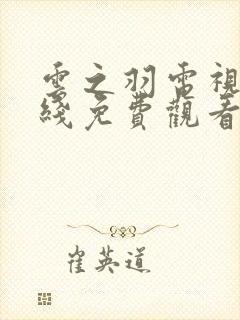 雲之羽電視
綫免費觀看
崔英道